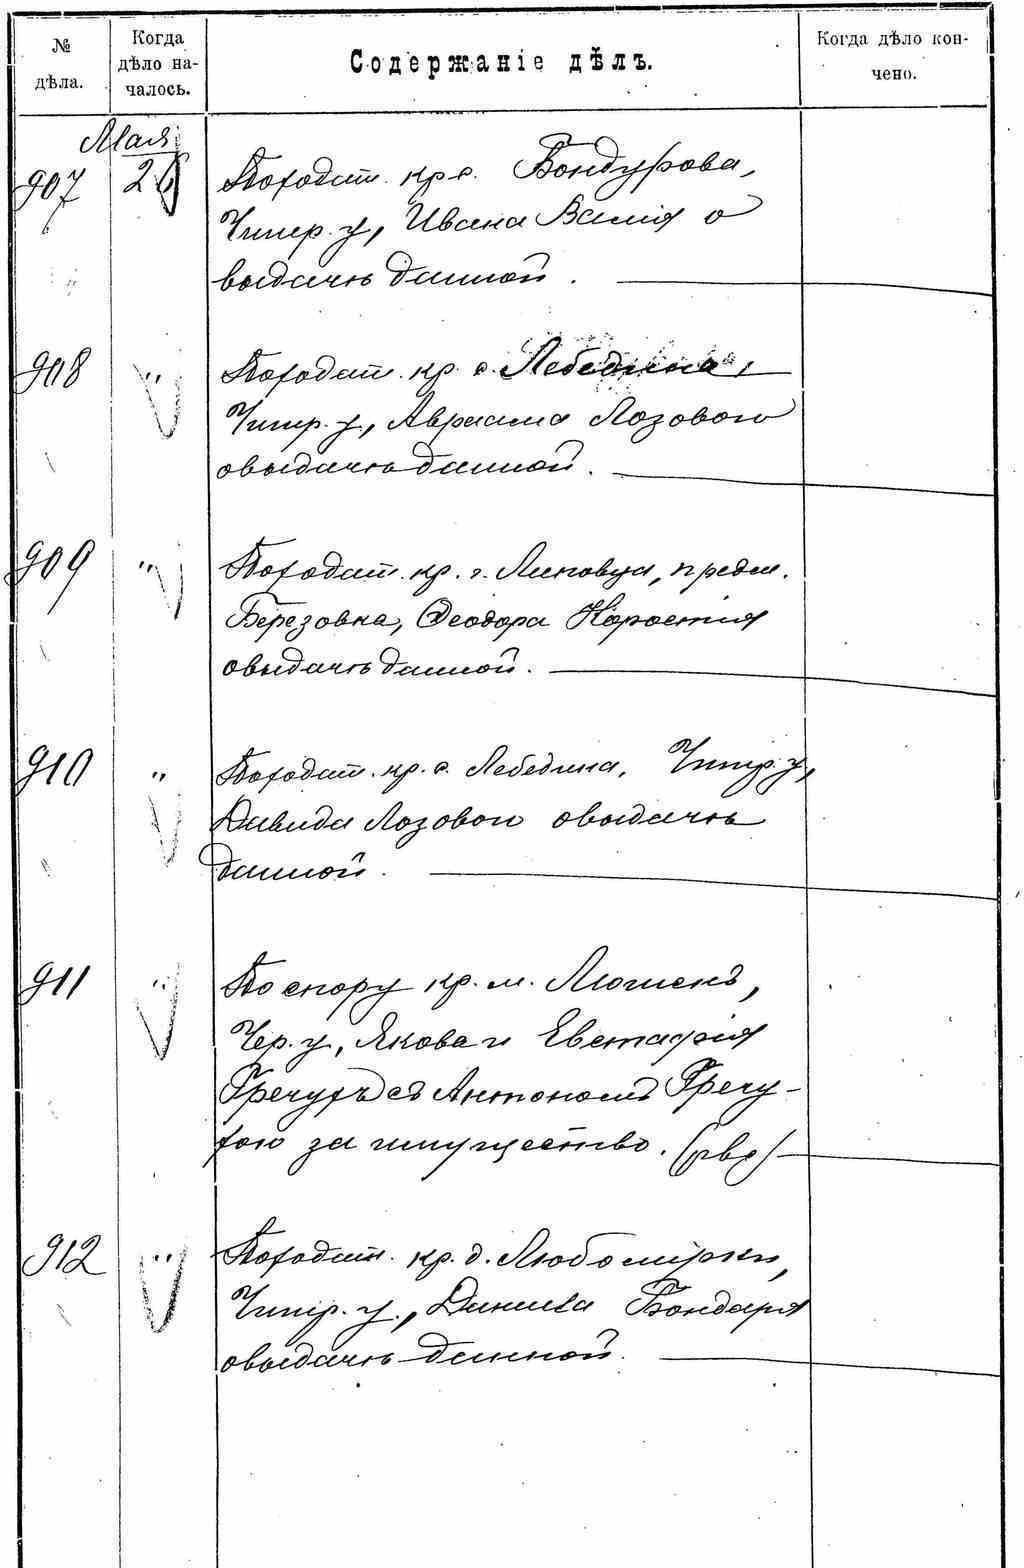 № дѣла.
Когда дѣло на-
чалось.
Содержаніе дѣлъ.
Когда дѣло кон-
чено.
Мая
907 26 По ходат. кр. с. Бондурова,
Чигир. у, Ивана Ва о
выдачѣ данной.
908 " По ходат. кр. с. Лебедина,
Чигир. у., Авраама Лозового
о выдачѣ данной.
909 " По ходат. кр. с. Липовца, предм.
Березовка, Ѳеодора Коростія
о выдачѣ данной.
910 " По ходат. кр. с. Лебедина, Чигир. у,
Давида Лозового о выдачѣ
данной.
911 " По спору кр. м.
Чер. у, Якова и Евстафія
Гречухъ съ Антономъ Гречу-
хою за имущество.
912 " По ходат. кр. д. Любомірки,
Чигир. у., Данила Бондаря
о выдачѣ данной.